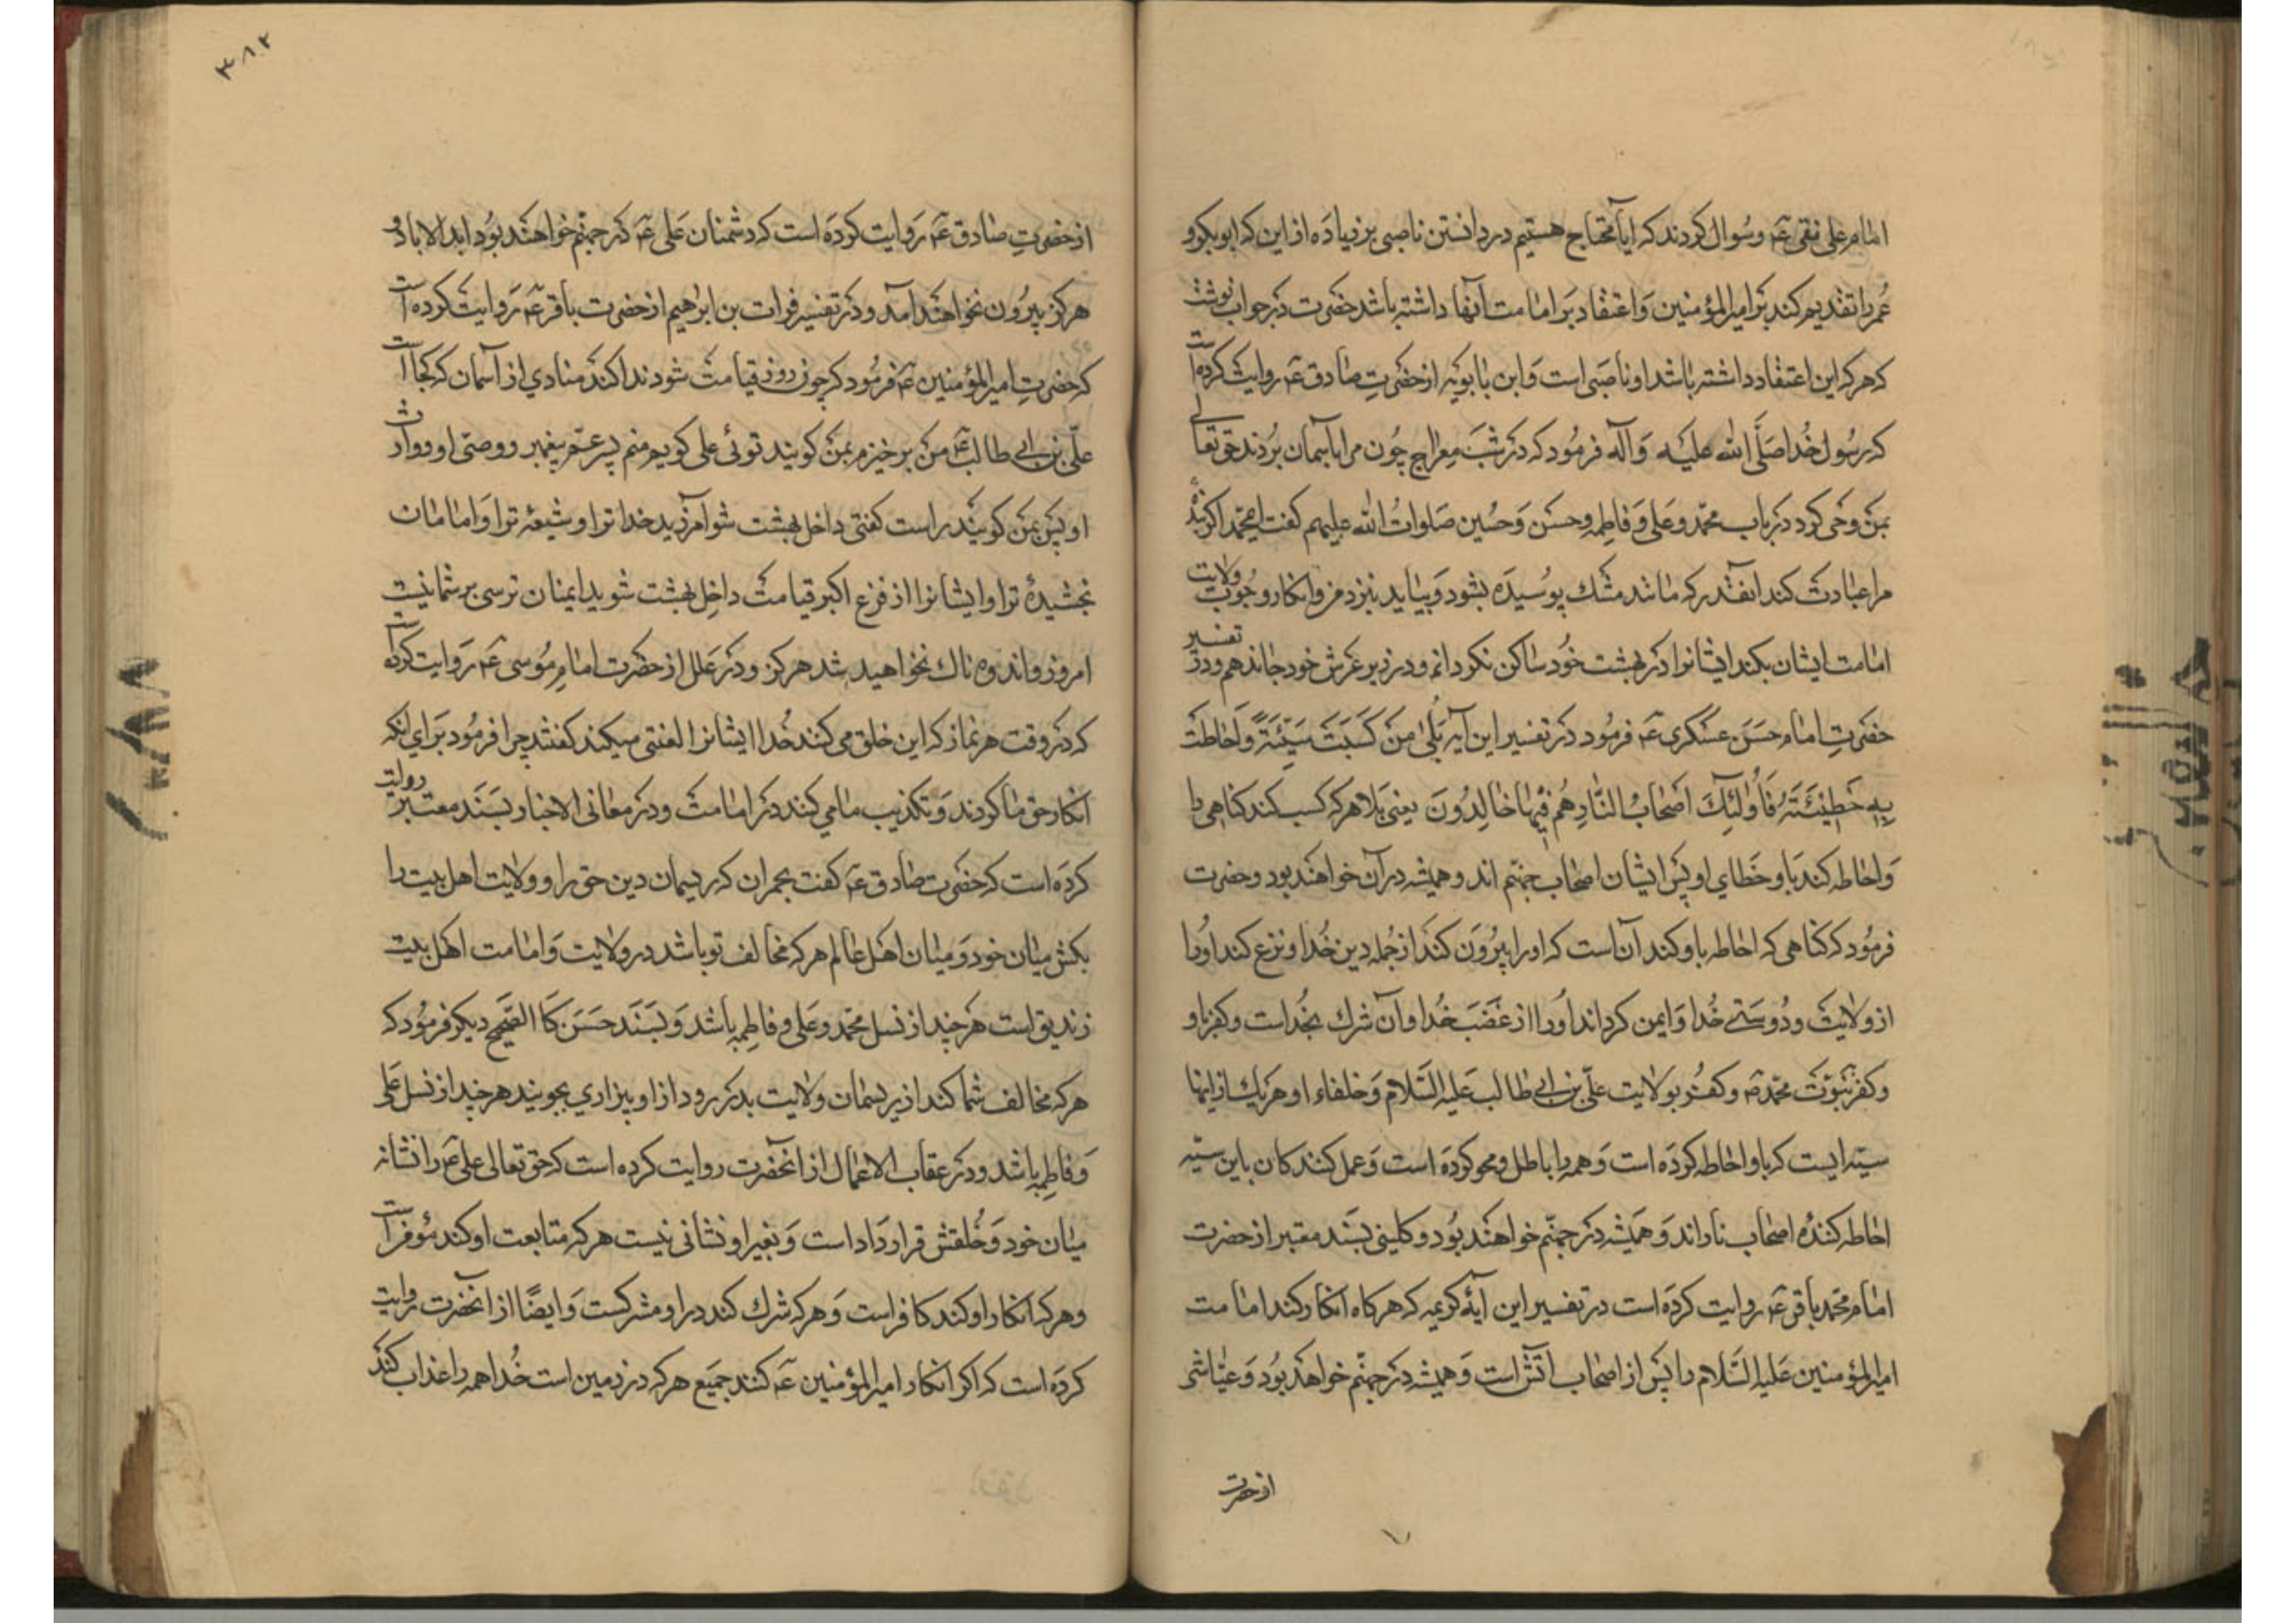 امام علی نقی عۤ وسُوال کردند که ایا محتاج هستیم در دانستن ناصبی بر زیاده از این که ابوبکر و
عُمر را تقدیم کند بَر امیر المؤمنین وَاعتقاد بَر امامت آنها داشته باشد حضرت دَر جواب نوشت
که هر که این اعتقاد داشته باشد او ناصَبی است وَابن بابویَه از حضرتِ صٰادق عۤ روایت کرده است
که رسُول خُدا صَلَّی الله علیَه وَآله فرمُود که دَر شبَ مِعراج چُون مرا بآسمان بُردند حق تعالی
بمَن وَحی کرد دَر باب محمّد وعَلی وَفاطِمه وحسَن وَحُسین صَلواتُ الله علیهم گفت ای محمّد اگر بندۀ
مرا عبادت کند انقدَر که مانند مَشک پوسیدَه بشود وَبیاید بنزد من وانکار وجُوب ولایت
امامت ایشان بکند ایشانرا دَر بهشت خُود ساکن نکردانم و در زیر عَرش خود جا ندهم ودر تفسیر
حضَرتِ امام حسَن عسکری عۤ فرمُود دَر تفسیر این آیه بَلٰی مَن کَسَبَ سَیِّئَةً وَاَحَاطَت
بِهِ خَطِیئَتُهُ فَاُولٰئِکَ اَصْحَابُ النَّارِ هُم فِیهَا خَالِدُونَ یعنی بَلا هر که کسب کند کناهی را
وَاحاطه کند باو خَطای او پَس ایشان اصحاب جهنّم اند وهمیشه در آن خواهند بود وحضرت
فرمُود که کناهی که احاطه باو کند آن است که او را بیرُون کند از جُمله دین خُدا ونزع کند اوُرا
از ولایَت ودُوستی خُدا وَایمن کرداند اوُرا از غضَبَ خُدا وآن شرك بخُداست وکفر باو
وکفر بنَبوّت محمّد صۤ وکفُر بولایت علّی بن ابی طالب عَلیه السَّلام وَخلفاء او هر یك از اینها
سیّه ایست که باو احاطه کردَه است وَهمه را باطل ومحو کردَه است وَعمل کنندکان باین سیّه
احاطه کنندُه اصحاب نار اند وَهَمیشه دَر جهنّم خواهند بُود وکلینی بسَند معتبر از حضرت
امام محمّد باقر عۤ روایت کردَه است در تفسیر این آیۀ کریمه که هر کاه انکار کند امامت
امیر المؤمنین عَلیه السَّلام را پَس از اصحاب آتش است وَهمیشه دَر جهنّم خواهد بُود وَعیّاشی
از حضرت
۳۸۲
از حضرتِ صٰادق عۤ رَوایت کردَه است که دشمنان عَلی عۤ دَر جهنّم خُواهند بُود ابد الاباد و
هرکز بیرُون نخواهند آمد ودَر تفسیر فرات بن ابرٰهیم از حضرت باقر عۤ رَوایت کرده است
که حضَرتِ امیر المؤمنین عۤ فرمُود که چون روز قیامَت شود ندا کند منادی از آسمان که کجا است
علّی بن ابی طالب عۤ من بر خیزم بمَن کویند توئی علی کویم منم پسر عمّ پیغمبر ووصّی او ووارث
او پس بمَن کویند راست گفتی داخل بهشت شو آمرزید خدا ترا وشیعۀ ترا وَامان
بخشیدۀ ترا وایشانرا از فزع اکبر قیامَت داخل بهشت شوید ایمنان ترسی بر شما نیست
امروز واندوه ناك نخواهید شد هرکز ودَر عَلل از حضرت امام مُوسی عۤ رَوایت کرده است
که دَر وقت هر نماز که این خلق می کنند خُدا ایشانرا لعنتی میکند گفتند چرا فرمُود بَرای انکه
انکار حق ما کردند وَتکذیب ما می کنند دَر امامت ودَر معانی الاخبار بسَند معتبر روایت
کردَه است که حضَرت صٰادق عۤ گفت بحمران که ریسمان دین حق را وولایت اهل بیت را
بکش میان خود وَمیان اهَل عالم هر که مخالف تو باشد در ولایت وَامامت اهَل بیت
زندیق است هر چند از نسل محمّد وعَلی وفاطِمه باشد وَبسَند حَسَن کَا الصّحیح دیکر فرمُود که
هر که مخالف شما کند از ریسمٰان ولایت بدَر رود از او بیزاری بجویند هر چند از نسل علی
وَفاطِمه باشد ودَر عقاب الاعمال از آنحضرت روایت کرده است که حق تعالی علی عۤ را نشانه
میان خود وَخُلقش قرار دَاد است وَبغیر او نشانی نیست هر که متابعت او کند مؤمن است
وهر که انکار او کند کافر است وَهر که شرك کند در او مشرکست وَایضًا از آنحضرت روایت
کردَه است که اکر انکار امیر المؤمنین عۤ کنند جمَیع هر که در زمین است خُدا همه را عذاب کند